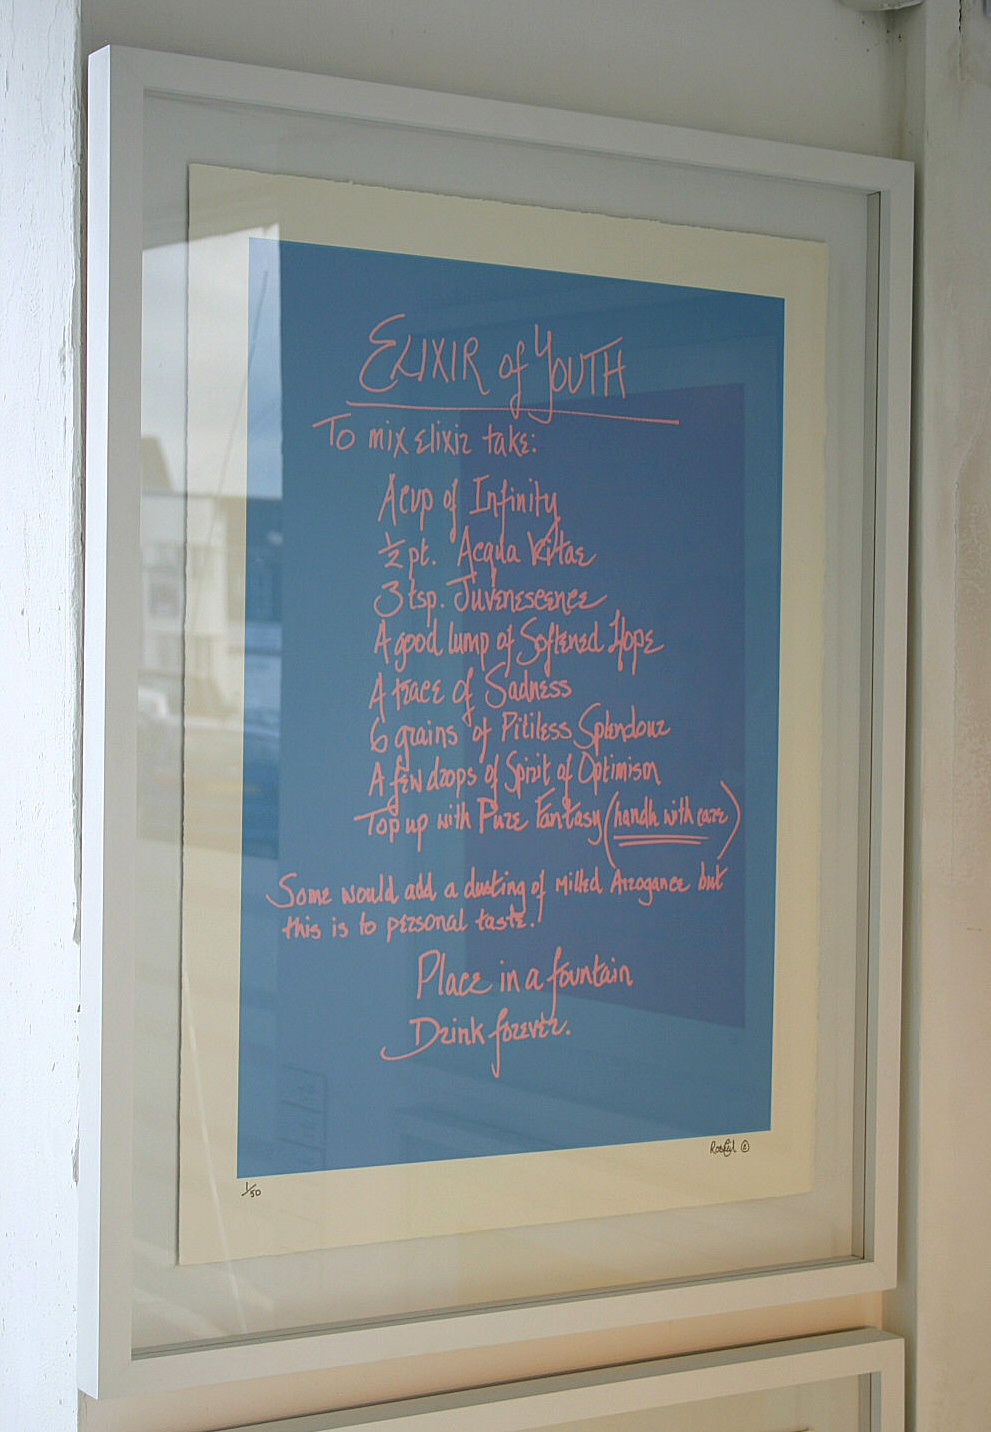 ELIXIR of YOUTH
To mix elixir take:
A cup of Infinity
½ pt. Acqua Vitae
3 tsp. Juvenescence
A good lump of Softened Hope
A trace of Sadness
6 grains of Pitiless Splendour
A few drops of Spirit of Optimism
Top up with Pure Fantasy (handle with care)
Some would add a dusting of milled Arrogance but
this is to personal taste.
Place in a fountain
Drink forever.
1/50